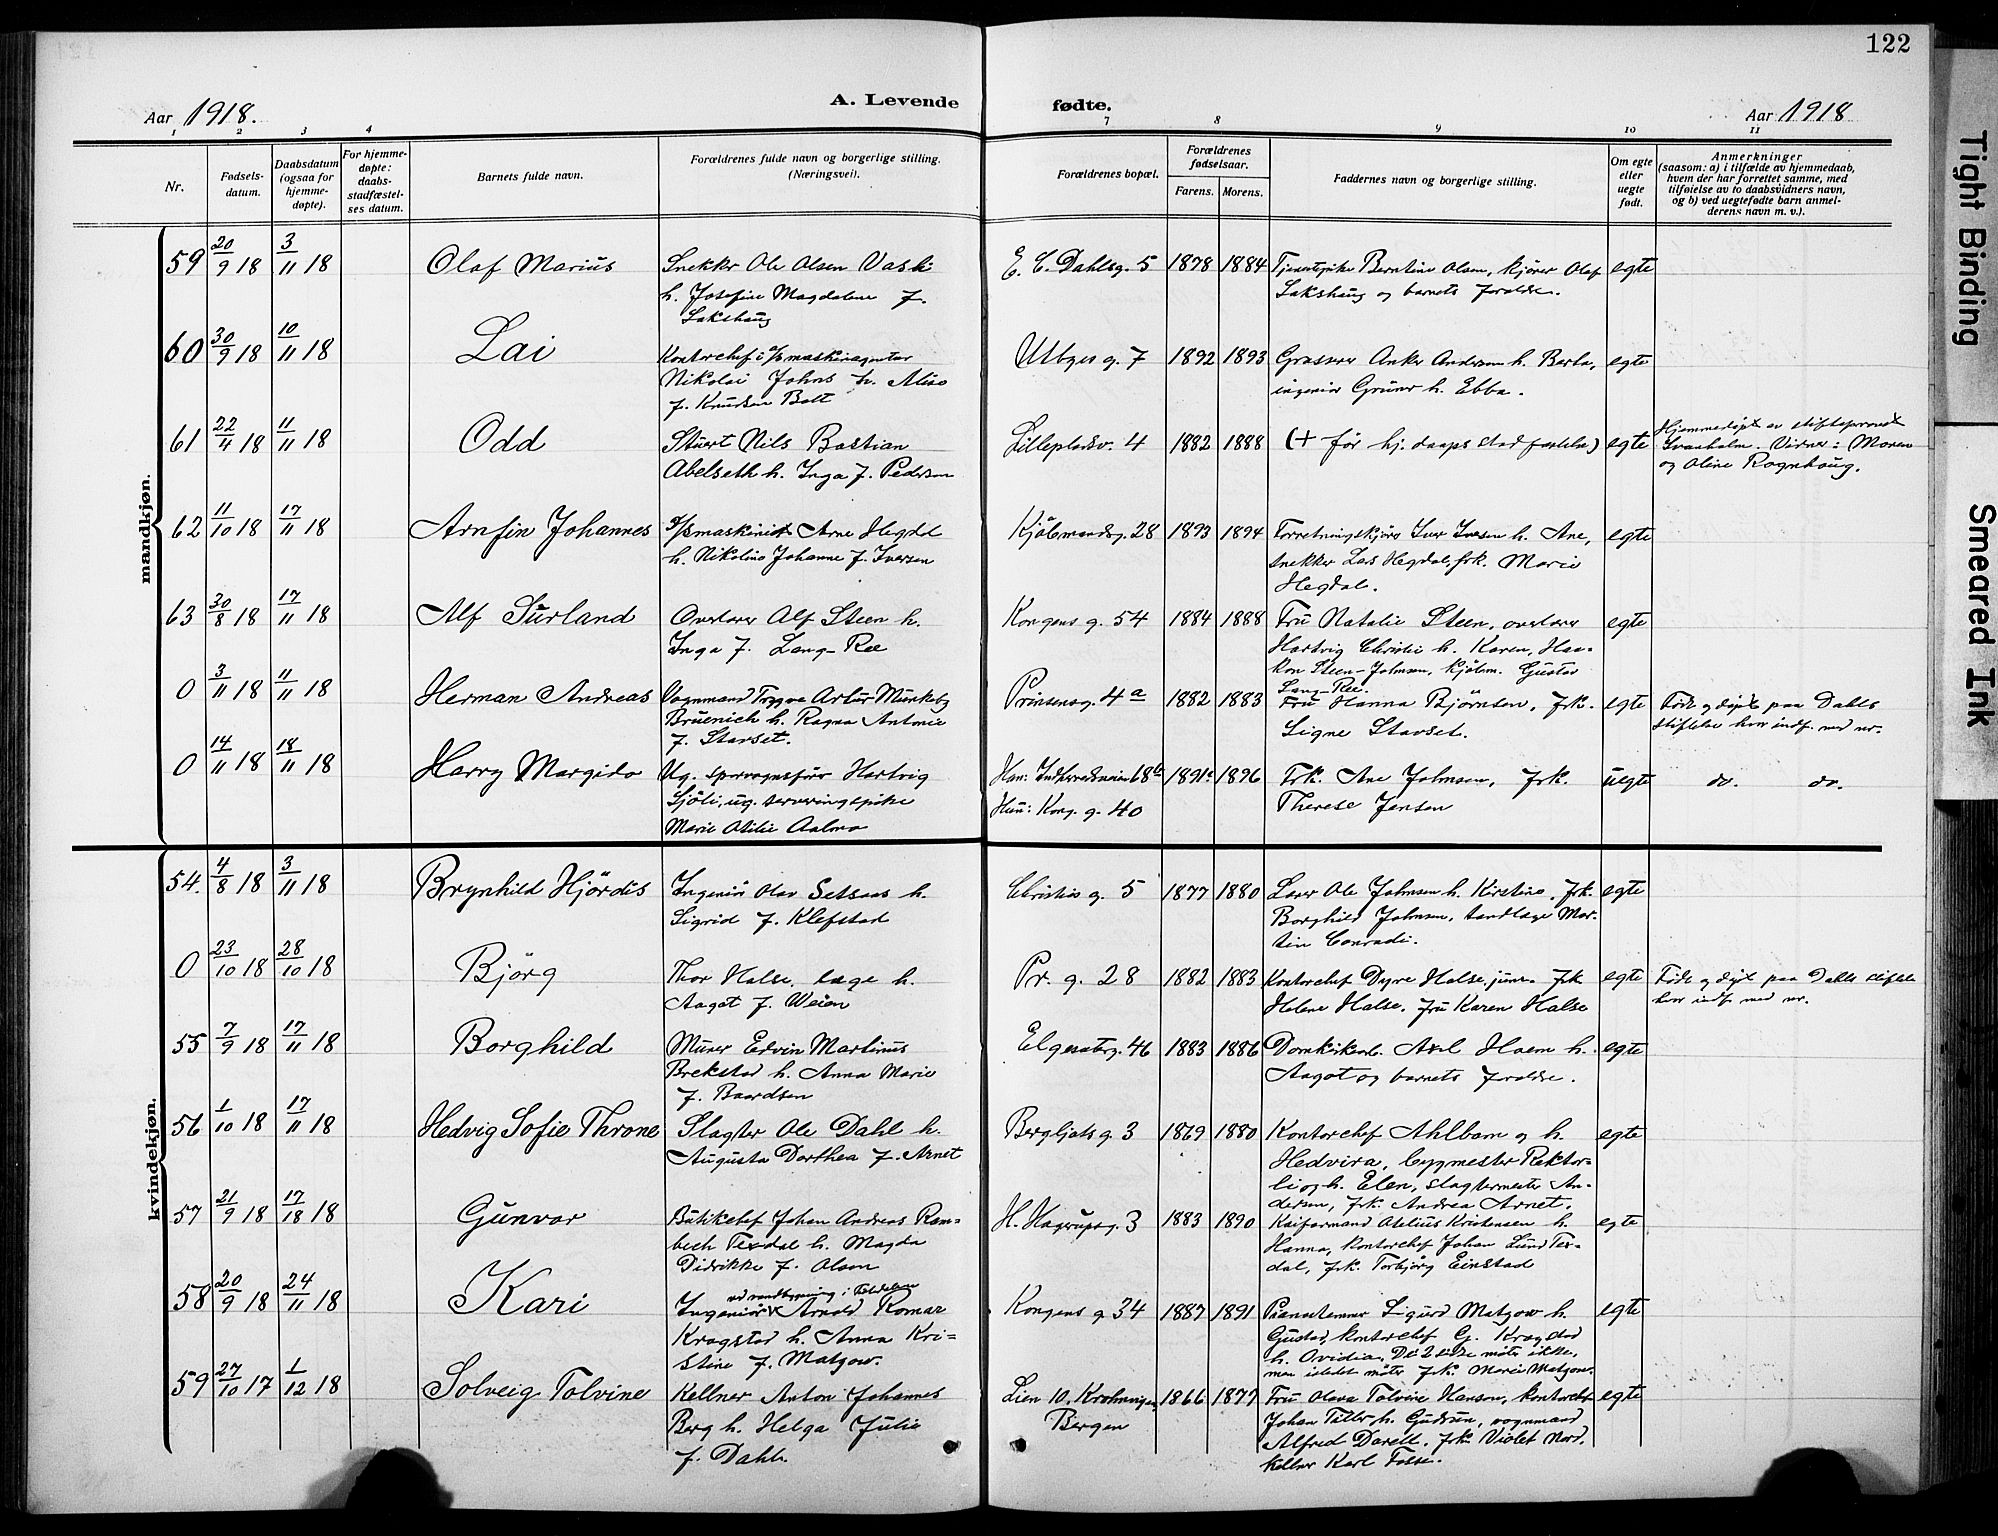 122
Aar 1918.
A. Levende
fødte.
Aar 1918
1 2 3 4
7 8 9 10 11
Nr.
Fødsels-
datum.
Daabsdatum
(ogsaa for
hjemme-
døpte).
For hjemme-
døpte:
daabs-
stadfæstel-
ses datum.
Barnets fulde navn.
Forældrenes fulde navn og borgerlige stilling.
(Næringsvei).
Forældrenes bopæl.
Forældrenes
fødselsaar.
Farens. Morens.
Faddernes navn og borgerlige stilling.
Om egte
eller
uegte
født.
Anmerkninger
(saasom: a) i tilfælde av hjemmedaab,
hvem der har forrettet samme, med
tilføielse av to daabsvidners navn,
og b) ved uegtefødte barn anmel-
derens navn m. v.).
mandkjøn.
59 20/9 18 3/11 18 Olaf Marius Snekker Ole Olsen Vask E. C. Dahlsg. 5 1878 1884 Tjenestpike Berntine Olsen, kjører Olaf egte
h. Josefine Magdalene f. Sakshaug og barnets foraldre.
Sakshaug
60 30/9 18 10/11 18 Lai Kontorchef i Utbygs g. 7 1892 1893 Grosserer Anker Andersen h. Berta, egte
Nikolai Johns h. Alise ingeniør Gruner h. Ebba.
f. Knudsen Bolt
61 22/4 18 11/11 18 Odd Stuert Nils Bastian Lillepladsv. 4 1882 1888 (+ før hj. daaps stadfestelse) egte Hjemmedøpt av stiftsprovst
Abelseth h. Inga f. Pedersen Svaaholm. Vidner: Moren
og Oline Rognhaug.
62 11/10 18 17/11 18 Arnfin Johannes maskinist Arne Hegdal Kjøbmandsg. 28 1893 1894 Forretningskjører Iver Iversen h. Ane, egte
h. Nikoline Johanne f. Iversen snekker Lars Hegdal, frk. Marie
Hegdal.
63 30/8 18 17/11 18 Alf Surland Overlærer Alf Steen h. Kongens g. 54 1884 1888 Fru Natalie Steen, overlærer egte
Inga f. Lang-Ree Hartvig Christie h. Karen, Haa-
kon Steen-Johnsen, kjøbm. Gustav
Lang-Ree.
0 3/11 18 11/11 18 Herman Andreas Vognmand Trygve Artur Munkeby Prinsensg. 4a 1882 1883 Fru Hanna Bjørnsen, frk. egte Født og døpt paa Dahls
Bruenich h. Ragna Antonie Signe Stavset. stiftelse hvor indf. med nr.
f. Stavset.
0 14/11 18 18/11 18 Harry Margido Ug. sporvognsfører Hartvig Han: 68b 1891 1896 Frk. Ane Johnsen, frk. uegte do. do.
Sjøli, ug. serveringspike Hun: Kong. g. 40 Therese Jensen
Marie Otilie Aalmo
kvindekjøn.
54. 4/8 18 3/11 18 Brynhild Hjördis Ingeniør Olav Setsaas h. Christies g. 5 1877 1880 Lærer Ole Johnsen h. Kirstine, frk. egte
Sigrid f. Klefstad Borghild Johnsen, tandlæge Mar-
tin Conradi.
0 23/10 18 28/10 18 Björg Thor Halse, læge h. Pr. g. 28 1882 1883 Kontorchef Dyre Halse, junr. frk. egte Født og døpt paa Dahls stiftelse
Aagot f. Weien Helene Halse, fru Karen Halse hvor indf. med nr.
55 7/9 18 17/11 18 Borghild Murer Edvin Martinus Elgesæterg. 46 1883 1886 Domkirkeorg. Axel Hoem h. egte
Brekstad h. Anna Marie Aagot og barnets foraldre.
f. Baardsen
56 1/10 18 17/11 18 Hedvig Sofie Throne Slagter Ole Dahl h. Bergljots g. 3 1869 1880 Kontorchef Ahlbom og h. egte
Augusta Dorthea f. Arnet Hedvira, bygmester Rektor-
li og h. Elen, slagtermester An-
dersen, frk. Andrea Arnet.
57 21/9 18 17/18 18 Gunvor Butikchef Johan Andreas Ram- H. Hagerupsg. 3 1883 1890 Kaiformand Otelius Kristensen h. egte
bech Texdal h. Magda Hanna, kontorchef Johan Lund Tex-
Didrikke f. Olsen dal, frk. Torbjørg Einstad
58 20/9 18 24/11 18 Kari Ingeniør ved vandbygning i Arnold Romar Kongens g. 34 1887 1891 Pianostemmer Sigurd Matzow h. egte
Kragstad h. Anna Kri- Gustad, kontorchef G. Kragstad
stine f. Matzow. h. Ovidia. De 2 sidste møter ikke,
men istedet møter frk. Marie Matzow.
59 27/10 17 1/12 18 Solveig Tolvine Kellner Anton Johannes Lien 10, Krohningen, 1866 1877 Fru Olava Tolvine Hanson, kontorchef egte
Berg h. Helga Julie Bergen Johan Tiller h. Gudrun, vognmand
f. Dahl. Alfred Dorell, frk. Violet Nord,
kellner Karl False.
Tight Binding
Smeared Ink